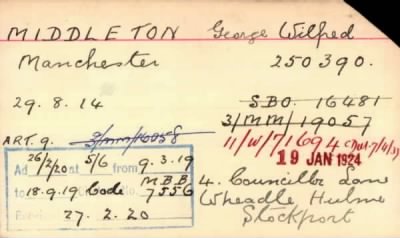 MIDDLETON George Wilfred
Manchester 250390.
29.8.14 S.B.O. 16481
3/MM/19057
ART. 9. 3/mm/16058 11/W/71694
19 JAN 1924
Ad 26/2/20 at 5/6 from 9.3.19
to 18.9.19 Code M.B.B. 7556
27.2.20
4. Councillor Lane
Wheadle Hulme
Stockport